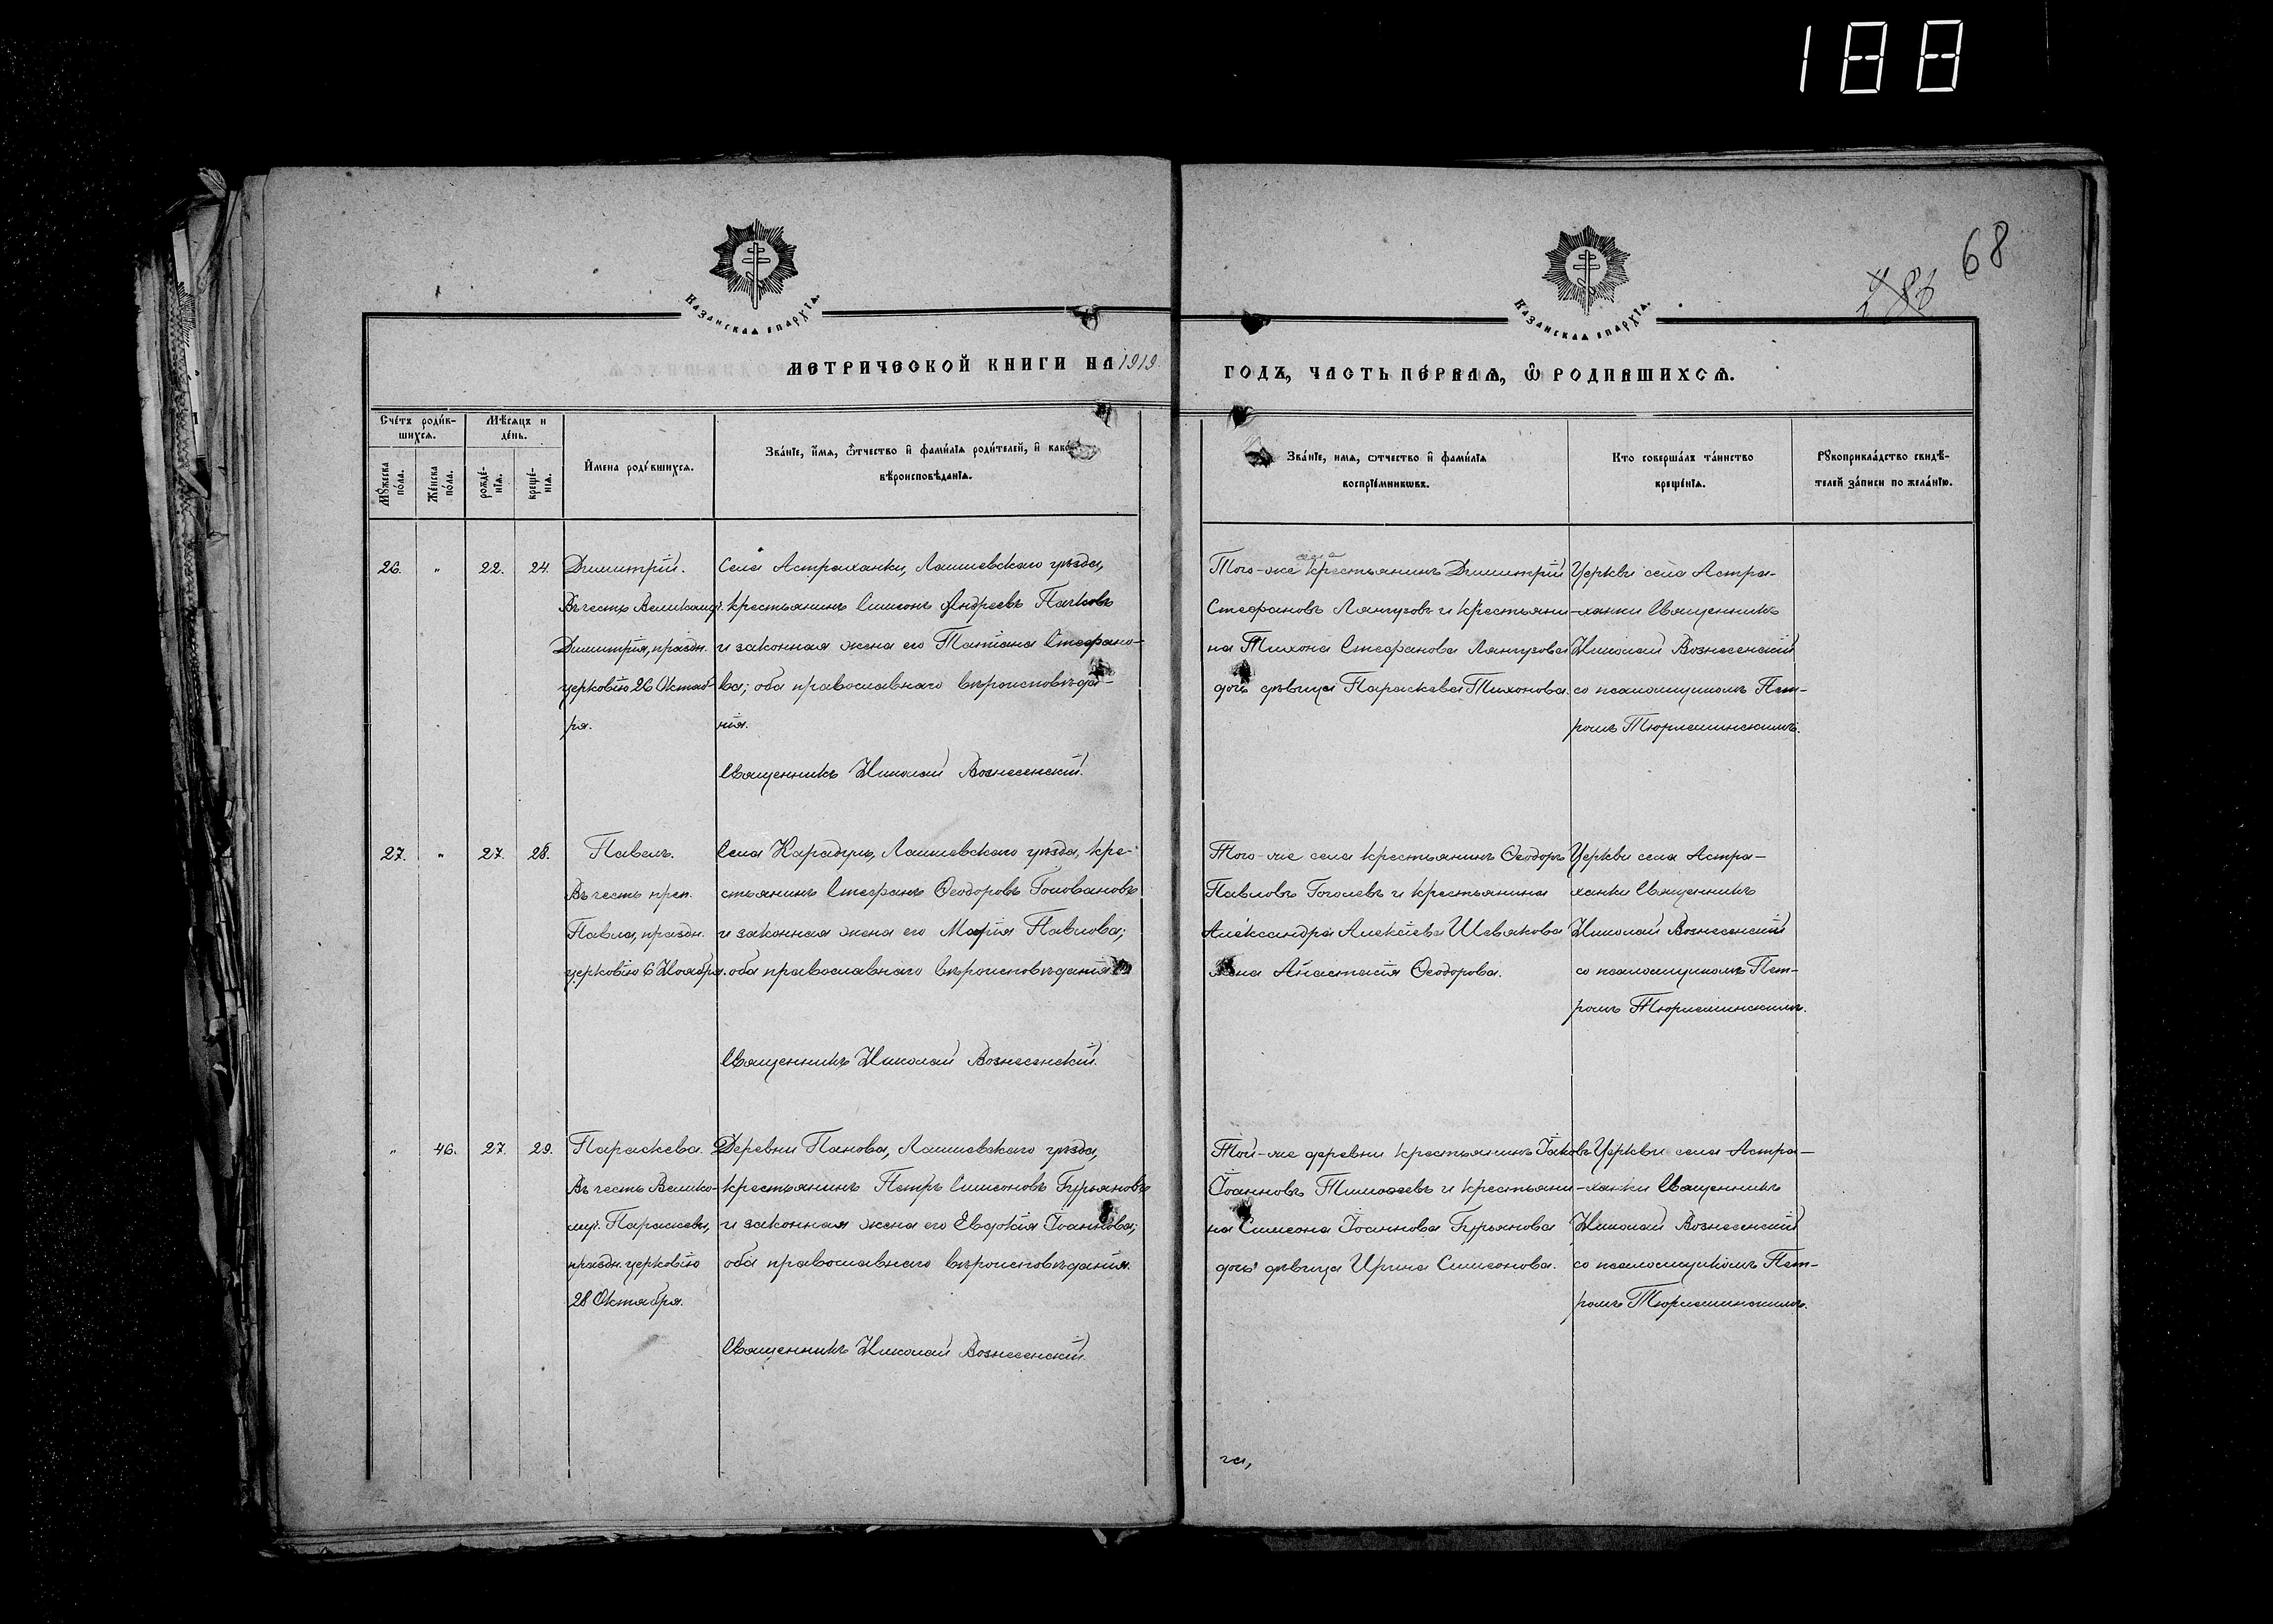 188
68
Казанская епархїѧ.
Казанская епархїѧ.
МЕТРИЧЕСКОЙ КНИГИ НА 1919
ГОДЪ, ЧАСТЬ ПЕ́РВАѦ, Ѿ РОДИВШИХСѦ.
Сче́тъ роди́в-
шихсѧ.
Мѣ́сѧцъ и
де́нь.
Мꙋ́жеска
по́ла.
Же́нска
по́ла.
рожде́-
нїѧ.
креще́-
нїѧ.
И́мена роди́вшихсѧ.
Зва́нїе, и́мѧ, ѻ́тчество и фами́лїѧ роди́телей, и како́
вѣроисповѣ́данїѧ.
Зва́нїе, имѧ, ѻтчество и фами́лїѧ
воспрїе́мниковъ.
Кто соверша́лъ та́инство
креще́нїѧ.
Рꙋкоприкла́дство свидѣ́-
телей за́писи по жела́нїю.
26. " 22. 24.
Димитрій.
Въ честь Великому.
Димитрія, праздн.
церковію 26 Октяб-
ря.
Села Астраханки, Лаишевскаго уѣзда,
крестьянинъ Симеонъ Андреевъ Пачковъ
и законная жена его Татіана Стефано-
ва; оба православнаго вѣроисповѣда-
нія.
Священникъ Николай Вознесенскій.
села
Того-же крестьянинъ Димитрій
Стефановъ Лянгузовъ и крестьяни-
на Тихона Стефанова Лянгузова
дочь дѣвица Параскева Тихонова.
Церкви села Астра-
ханки Священникъ
Николай Вознесенскій
со псаломщикомъ Пет-
ромъ Тюрнеминскимъ.
27. " 27. 28.
Павелъ.
Въ честь преп.
Павла, праздн.
церковію 6 Ноября.
Села Карадули, Лаишевскаго уѣзда, кре-
стьянинъ Стефанъ Ѳеодоровъ Головановъ
и законная жена его Марія Павлова;
оба православнаго вѣроисповѣданія.
Священникъ Николай Вознесенскій.
Того-же села крестьянинъ Ѳеодоръ
Павловъ Гоголевъ и крестьянина
Александра Алексіева Шевякова
жена Анастасія Ѳеодорова.
Церкви села Астра-
ханки Священникъ
Николай Вознесенскій
со псаломщикомъ Пет-
ромъ Тюрнеминскимъ.
" 46. 27. 29.
Параскева.
Въ честь Велико-
муч. Параскевы,
праздн. церковію
28 Октября.
Деревни Панова, Лаишевскаго уѣзда,
крестьянинъ Петръ Симеоновъ Бурьяновъ
и законная жена его Евдокія Іоаннова;
оба православнаго вѣроисповѣданія.
Священникъ Николай Вознесенскій.
Той-же деревни крестьянинъ Іаковъ
Іоанновъ Тимоѳеевъ и крестьяни-
на Симеона Іоаннова Бурьянова
дочь дѣвица Ирина Симеонова.
Церкви села Астра-
ханки Священникъ
Николай Вознесенскій
со псаломщикомъ Пет-
ромъ Тюрнеминскимъ.